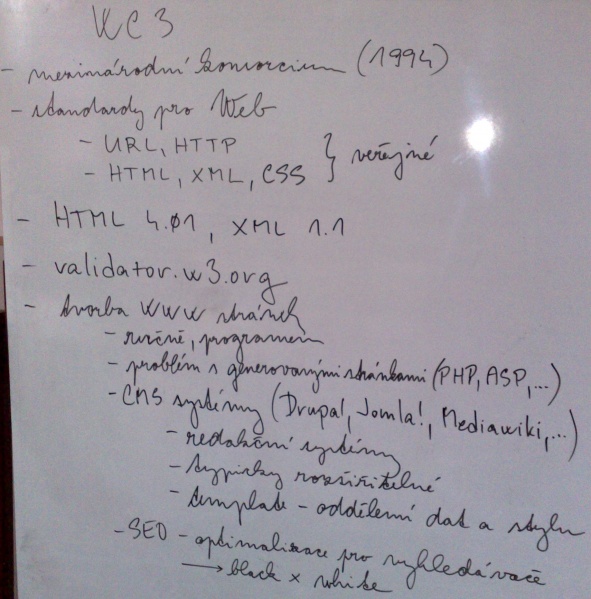 WC3
- mezinárodní konsorcium (1994)
- standardy pro Web
- URL, HTTP
- HTML, XML, CSS } veřejné
- HTML 4.01, XML 1.1
- validator.w3.org
- tvorba WWW stránek
- ručně, programem
- problém s generovanými stránkami (PHP, ASP,...)
- CMS systémy (Drupal, Jomla!, Mediawiki,...)
- redakční systémy
- typicky rozšiřitelné
- template - oddělení dat a stylu
- SEO - optimalizace pro vyhledávače
→ black × white